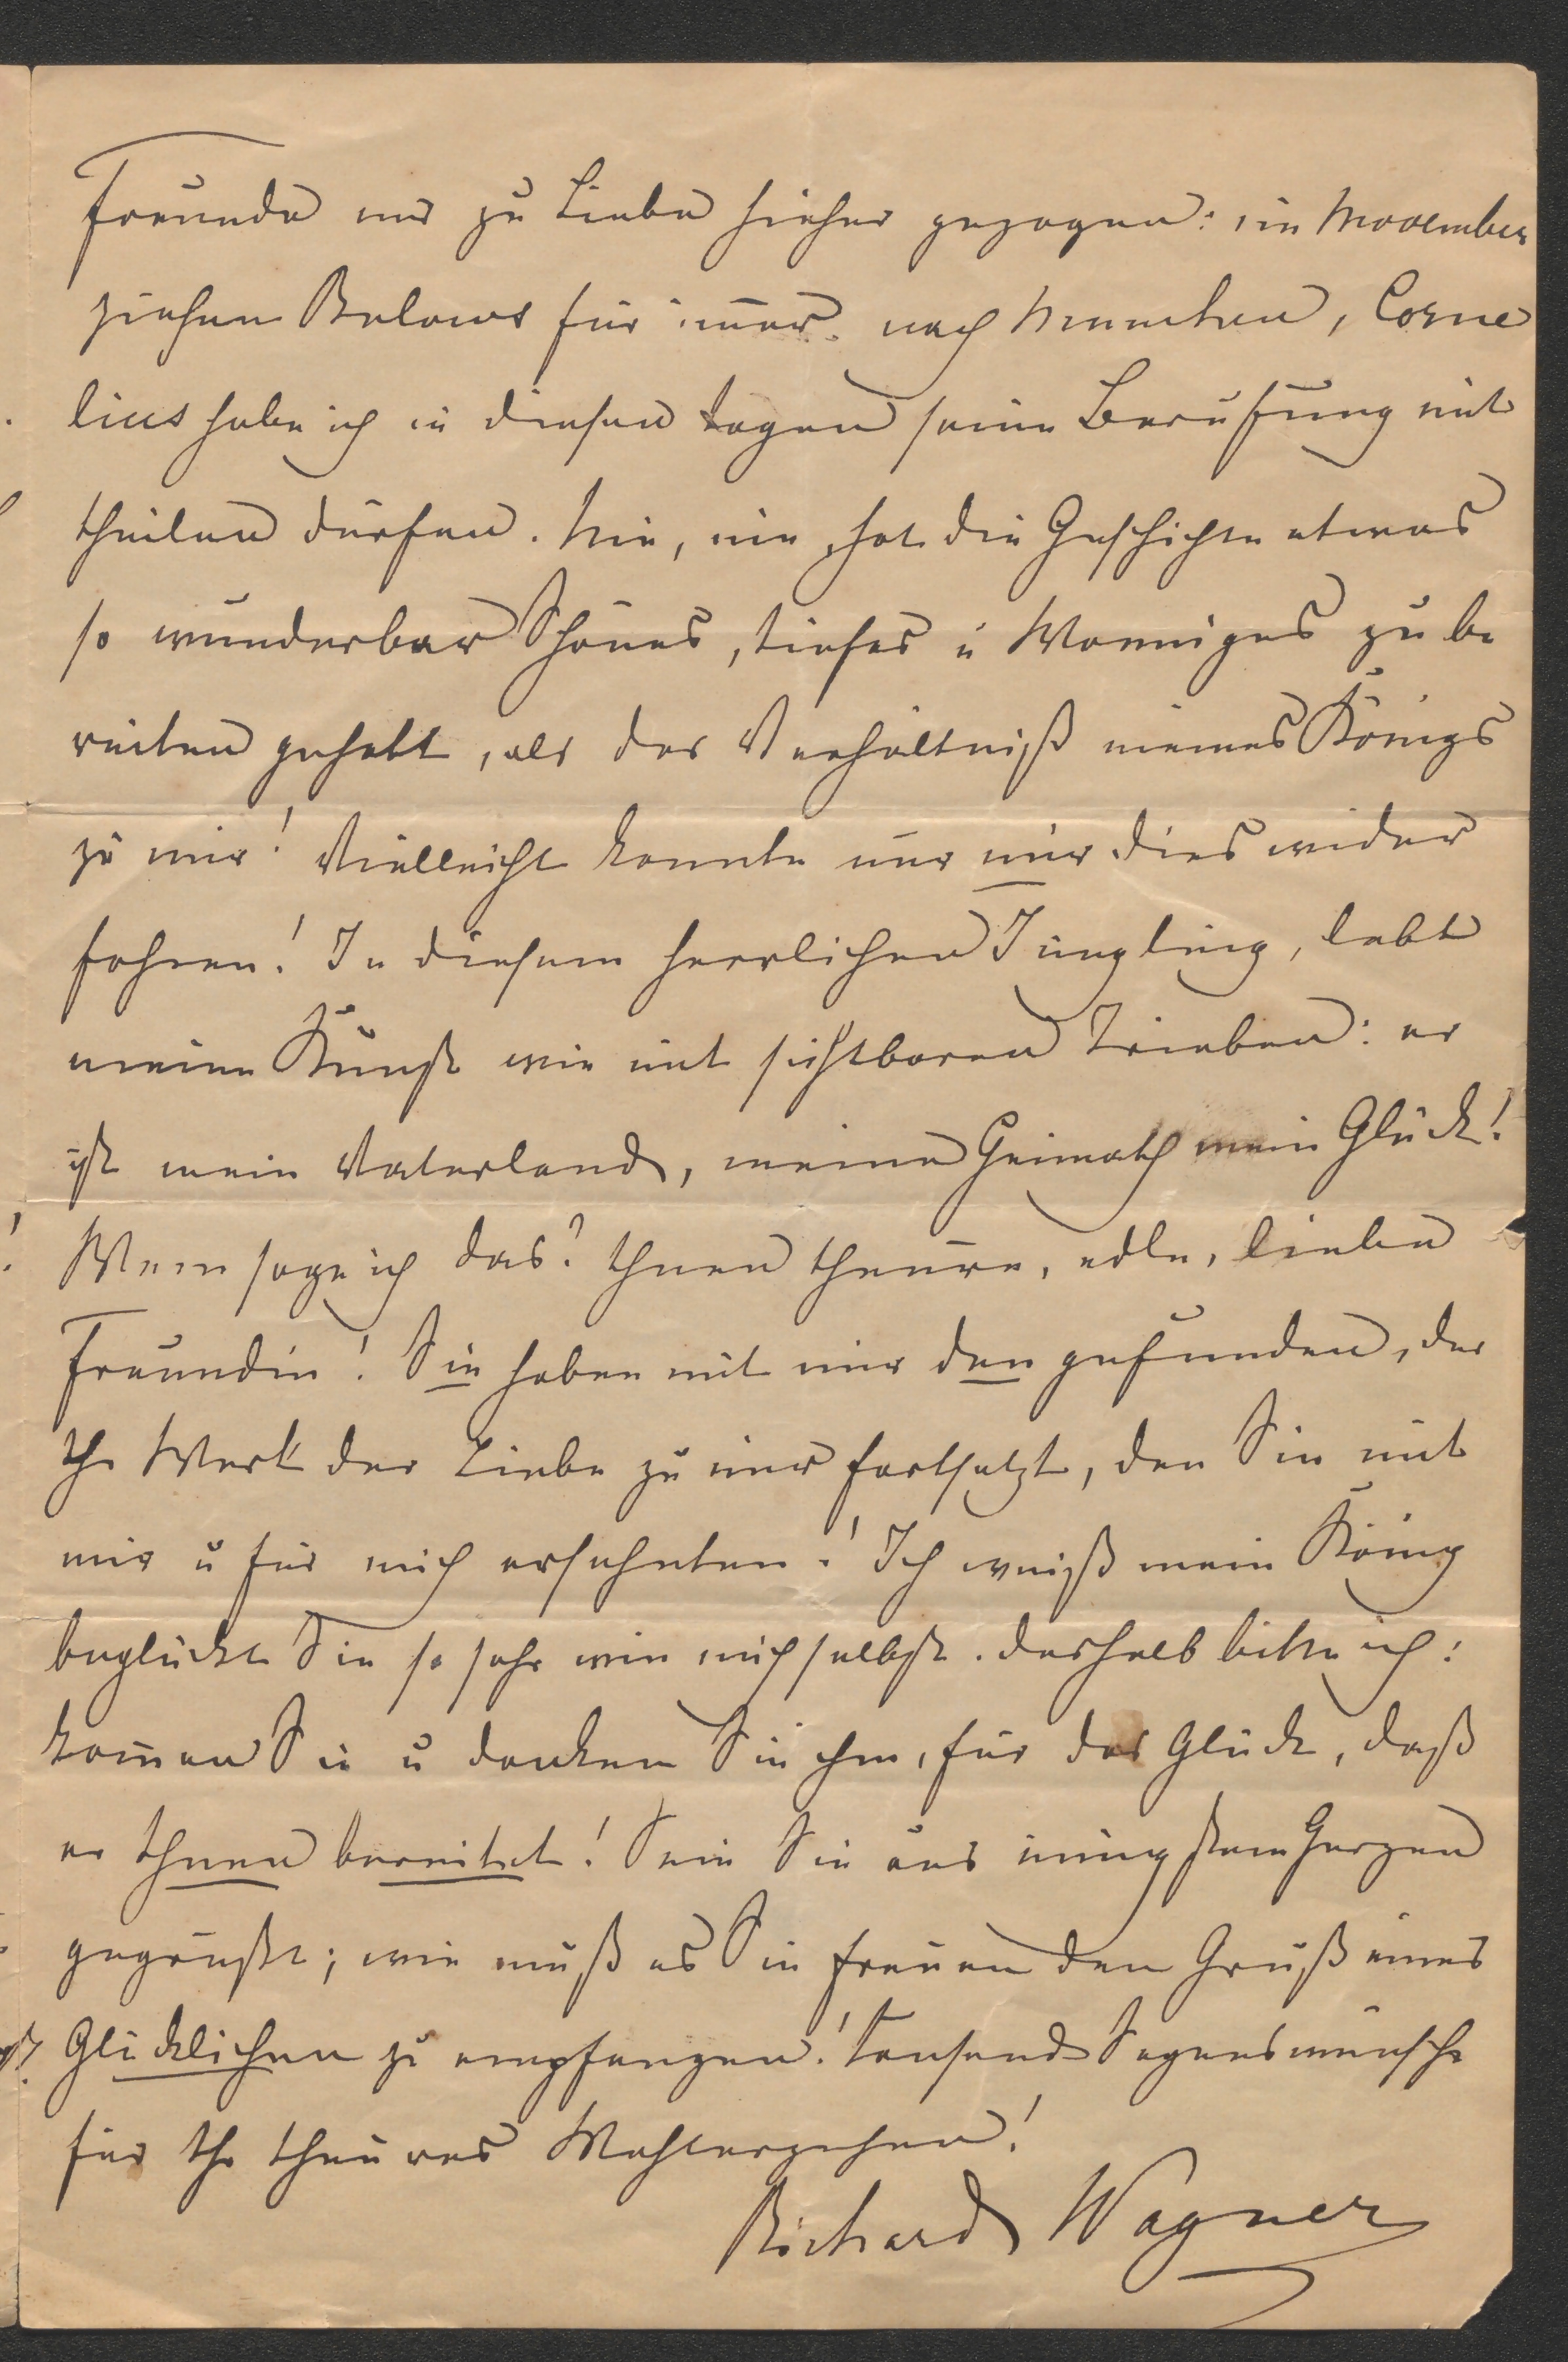 Freunde mir zu Liebe hieher gezogen: im November
ziehen Bulows für im̄er nach Munchen, Corne
lius habe ich in diesen Tagen seine Berufung mit
theilen dürfen. Nie, nie hat die Geschichte etwas
so wunderbar Schönes, tiefes u Wonniges zu be
reiten gehabt, als das Verhältniß meines Königs
zu mir! Vielleicht konnte nur mir dies wider
fahren! In diesem herrlichen Jüngling, lebt
meine Kunst wie mit sichtbaren Trieben: er
ist mein Vaterland, meine Heimath mein Glück!
Wem sage ich das? Ihnen theure, edle, liebe
Freundin! Sie haben mit mir den gefunden, der
Ihr Werk der Liebe zu mir fortsetzt, den Sie mit
mir u für mich ersehnten! Ich weiß mein König
beglückt Sie so sehr wie mich selbst. deshalb bitte ich:
kom̄en Sie u danken Sie ihm, für das Glück, daß
er Ihnen bereitet! Sein Sie aus innigstem Herzen
gegrüßt; wie muß es Sie freuen den Gruß eines
Glücklichen zu empfangen! Tausend Segenswünsche
für Ihr theures Wohlergehen!
Richard Wagner